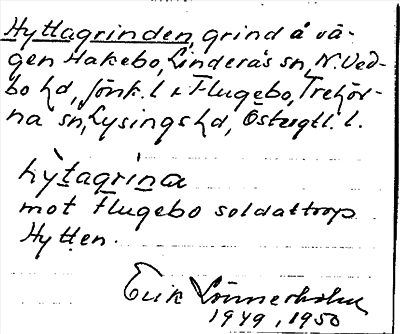 Hyttagrinden, grind å vä-
gen Hakebo, Linderås sn, N. Ved-
bo hd, Jönk. l. & Flugebo, Trehör-
na sn, Lysings hd, Östergtl. l.
hỳtagrìna
mot Flugebo soldattorp
Hytten.
Erik Lönnerholm
1949, 1950